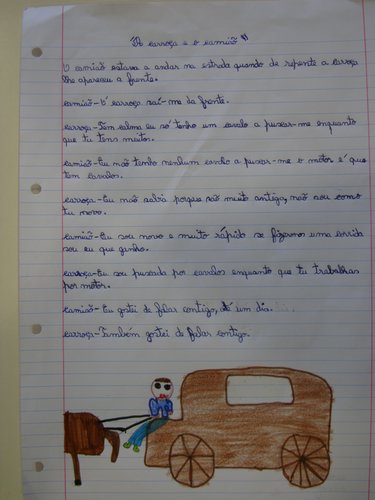 "A carroça e o camião"
O camião estava a andar na estrada quando de repente a carroça
lhe apareceu a frente.
camião-ó carroça sai-me da frente.
carroça-Tem calma eu só tenho um cavalo a puxar-me enquanto
que tu tens muitos.
camião-Eu não tenho nenhum cavalo a puxar-me o motor é que
tem cavalos.
carroça-Eu não sabia porque sou muito antiga, não sou como
tu novo.
camião-Eu sou novo e muito rápido se fizermos uma corrida
sou eu que ganho.
carroça-Eu sou puxada por cavalos enquanto que tu trabalhas
por motor.
camião-Eu gostei de falar contigo, até um dia.
carroça-Também gostei de falar contigo.